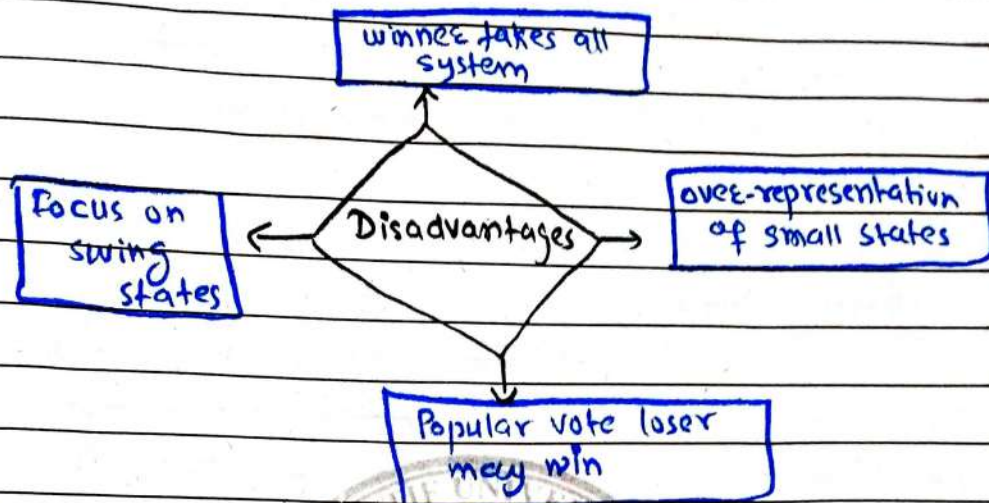 winner takes all
system
Focus on
swing
states
Disadvantages
over-representation
of small states
Popular vote loser
may win